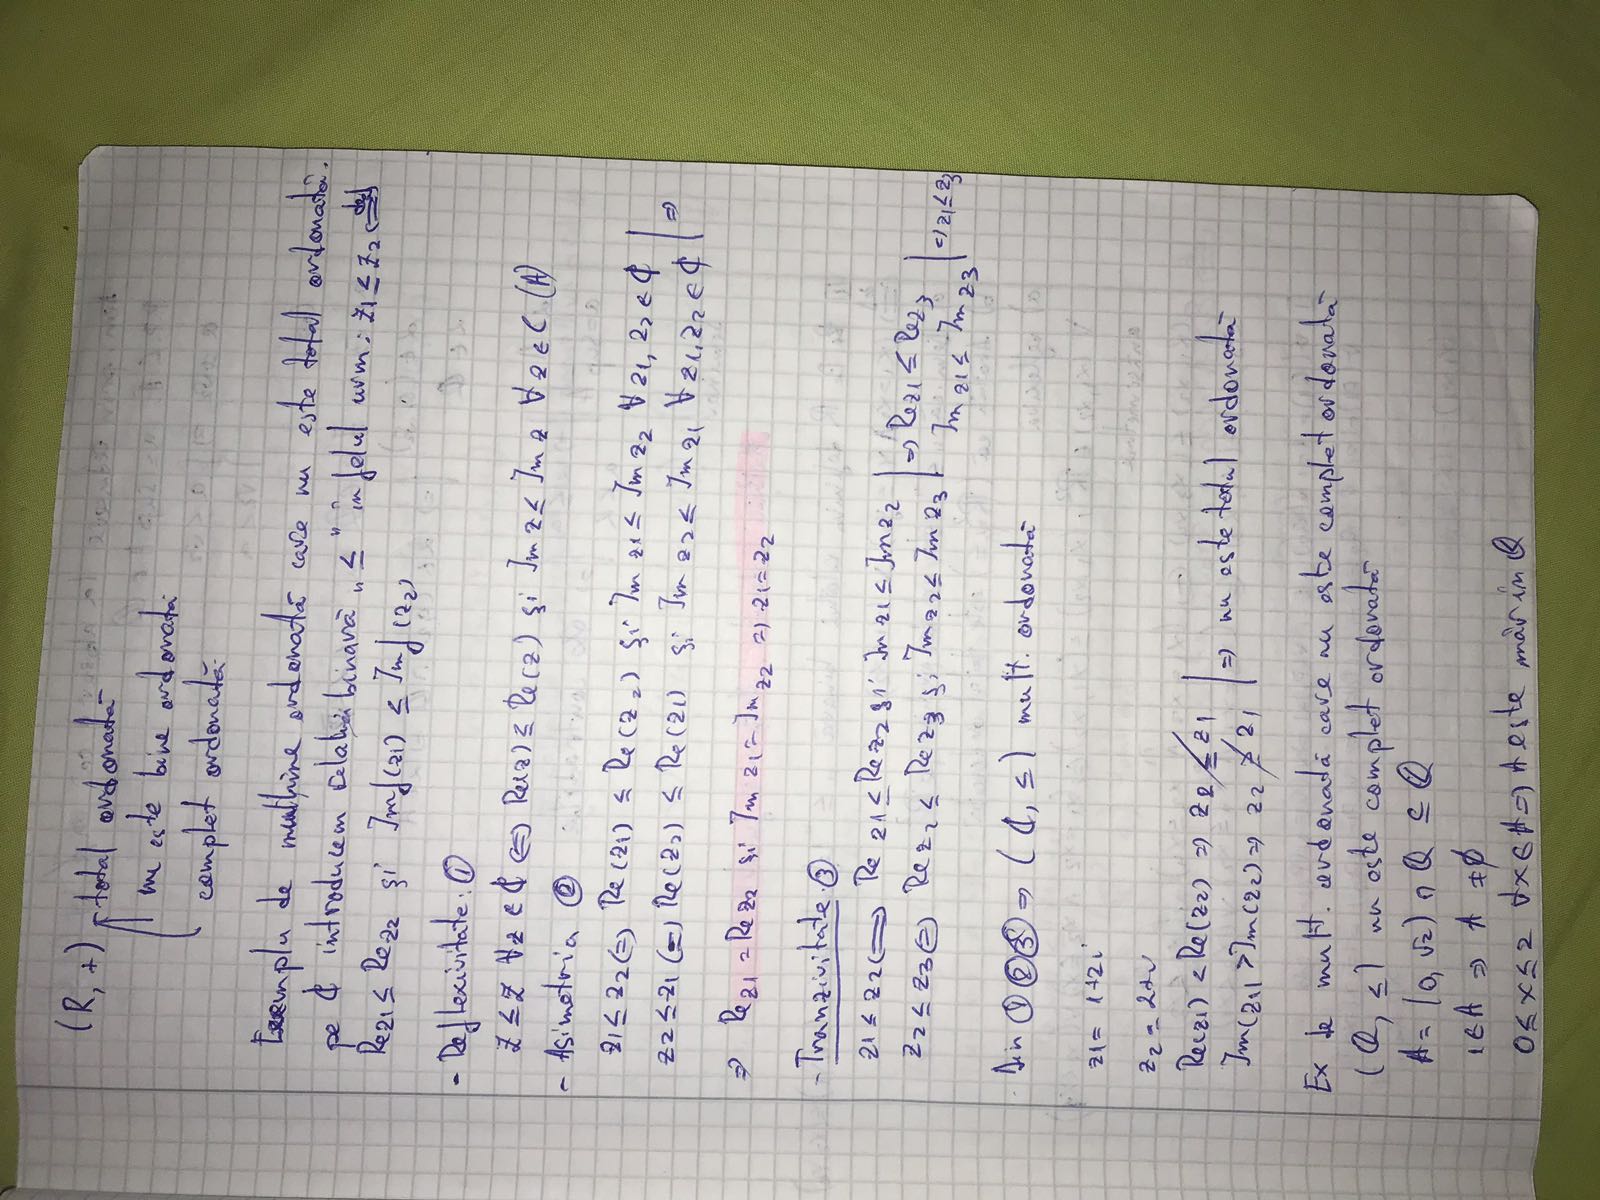 (R, +) total ordonată
nu este bine ordonată
complet ordonată
Exemplu de mulțime ordonată care nu este total ordonată.
pe ℂ introducem relația binară „≤" în felul urm: z1 ≤ z2
Re z1 ≤ Re z2 și Im(z1) ≤ Im(z2)
- Reflexivitate: ①
z ≤ z ∀ z ∈ ℂ (=) Re(z) ≤ Re(z) și Im z ≤ Im z ∀ z ∈ C (A)
- Asimetria ②
z1 ≤ z2 (=) Re(z1) ≤ Re(z2) și Im z1 ≤ Im z2 ∀ z1, z2 ∈ ℂ
z2 ≤ z1 (=) Re(z2) ≤ Re(z1) și Im z2 ≤ Im z1 ∀ z1, z2 ∈ ℂ | =>
=> Re z1 = Re z2 și Im z1 = Im z2 => z1 = z2
- Tranzivitate: ③
z1 ≤ z2 (=) Re z1 ≤ Re z2 și Im z1 ≤ Im z2 | => Re z1 ≤ Re z3
z2 ≤ z3 (=) Re z2 ≤ Re z3 și Im z2 ≤ Im z3 | Im z1 ≤ Im z3 | => z1 ≤ z3
Din ① ② ③ => (ℂ, ≤) mult. ordonată
z1 = 1+2i
z2 = 2+i
Re(z1) < Re(z2) => z2 ≰ z1
Im(z1) > Im(z2) => z2 ≱ z1 | => nu este total ordonată
Ex de mult. ordonată care nu este complet ordonată
(ℚ, ≤) nu este complet ordonată
A = [0, √2) ∩ ℚ ⊆ ℚ
1 ∈ A => A ≠ ∅
0 ≤ x ≤ 2 ∀ x ∈ A => A este măr în ℚ